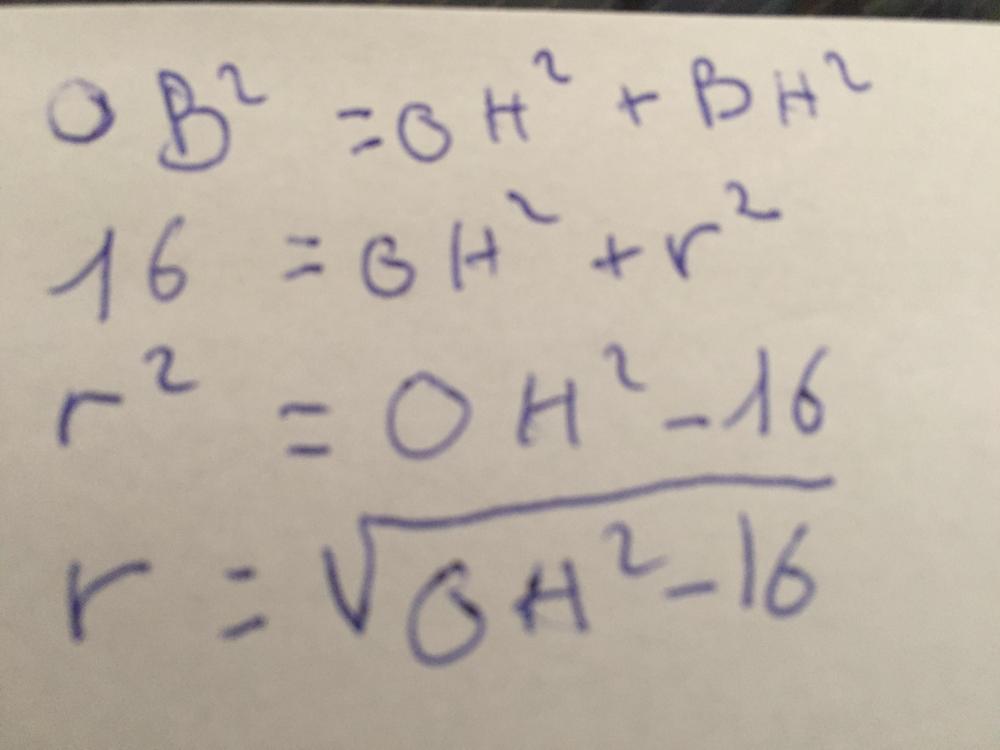 OB² = OH² + BH²
16 = OH² + r²
r² = OH² - 16
r = √OH² - 16